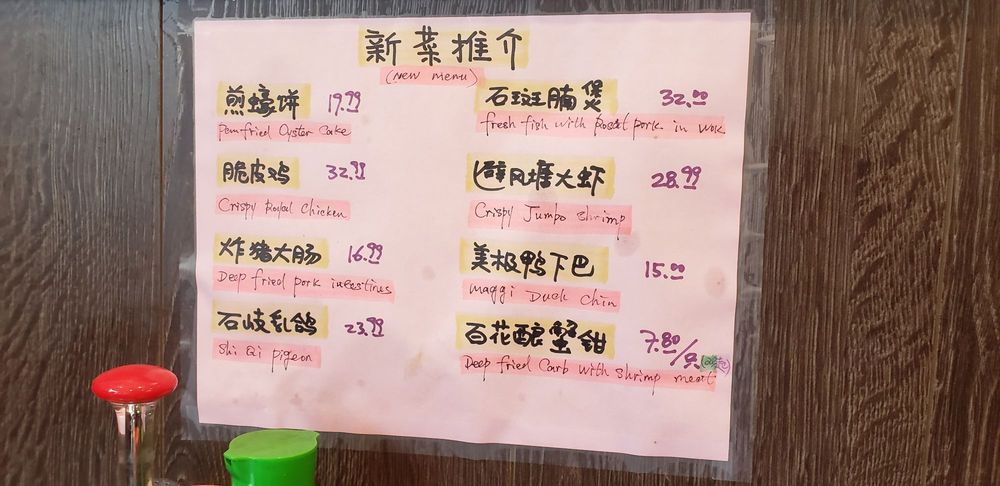 新菜推介
(new menu)
煎蠔饼 19.99
Pan fried Oyster Cake
脆皮鸡 32.99
Crispy Roast Chicken
炸猪大肠 16.99
Deep fried pork intestines
石岐乳鸽 23.99
Shi Qi pigeon
石斑腩煲 32.00
fresh fish with Roast pork in wok
避风塘大虾 28.99
Crispy Jumpo shrimp
美极鸭下巴 15.00
maggi Duck Chin
百花酿蟹钳 7.80/只
Deep fried Carb with shrimp meat